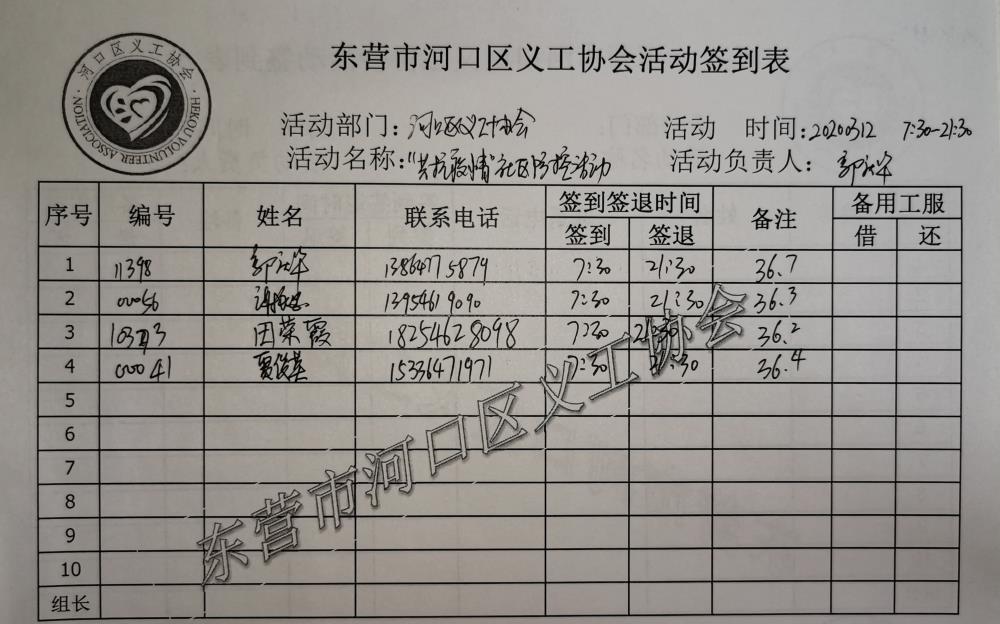 东营市河口区义工协会活动签到表
河口区义工协会
HEKOU VOLUNTEER ASSOCIATION
活动部门：河口区义工协会 活动 时间：20200312 7:30-21:30
活动名称："共抗疫情"社区防控活动 活动负责人：
序号 编号 姓名 联系电话 签到签退时间 备注 备用工服
签到 签退 借 还
1 11398 13864775879 7:30 21:30 36.7
2 00056 13954619090 7:30 21:30 36.3
3 田荣霞 18254628098 7:30 21:30 36.2
4 00041 15336471971 7:30 21:30 36.4
5
6
7
8
9
10
组长
东营市河口区义工协会